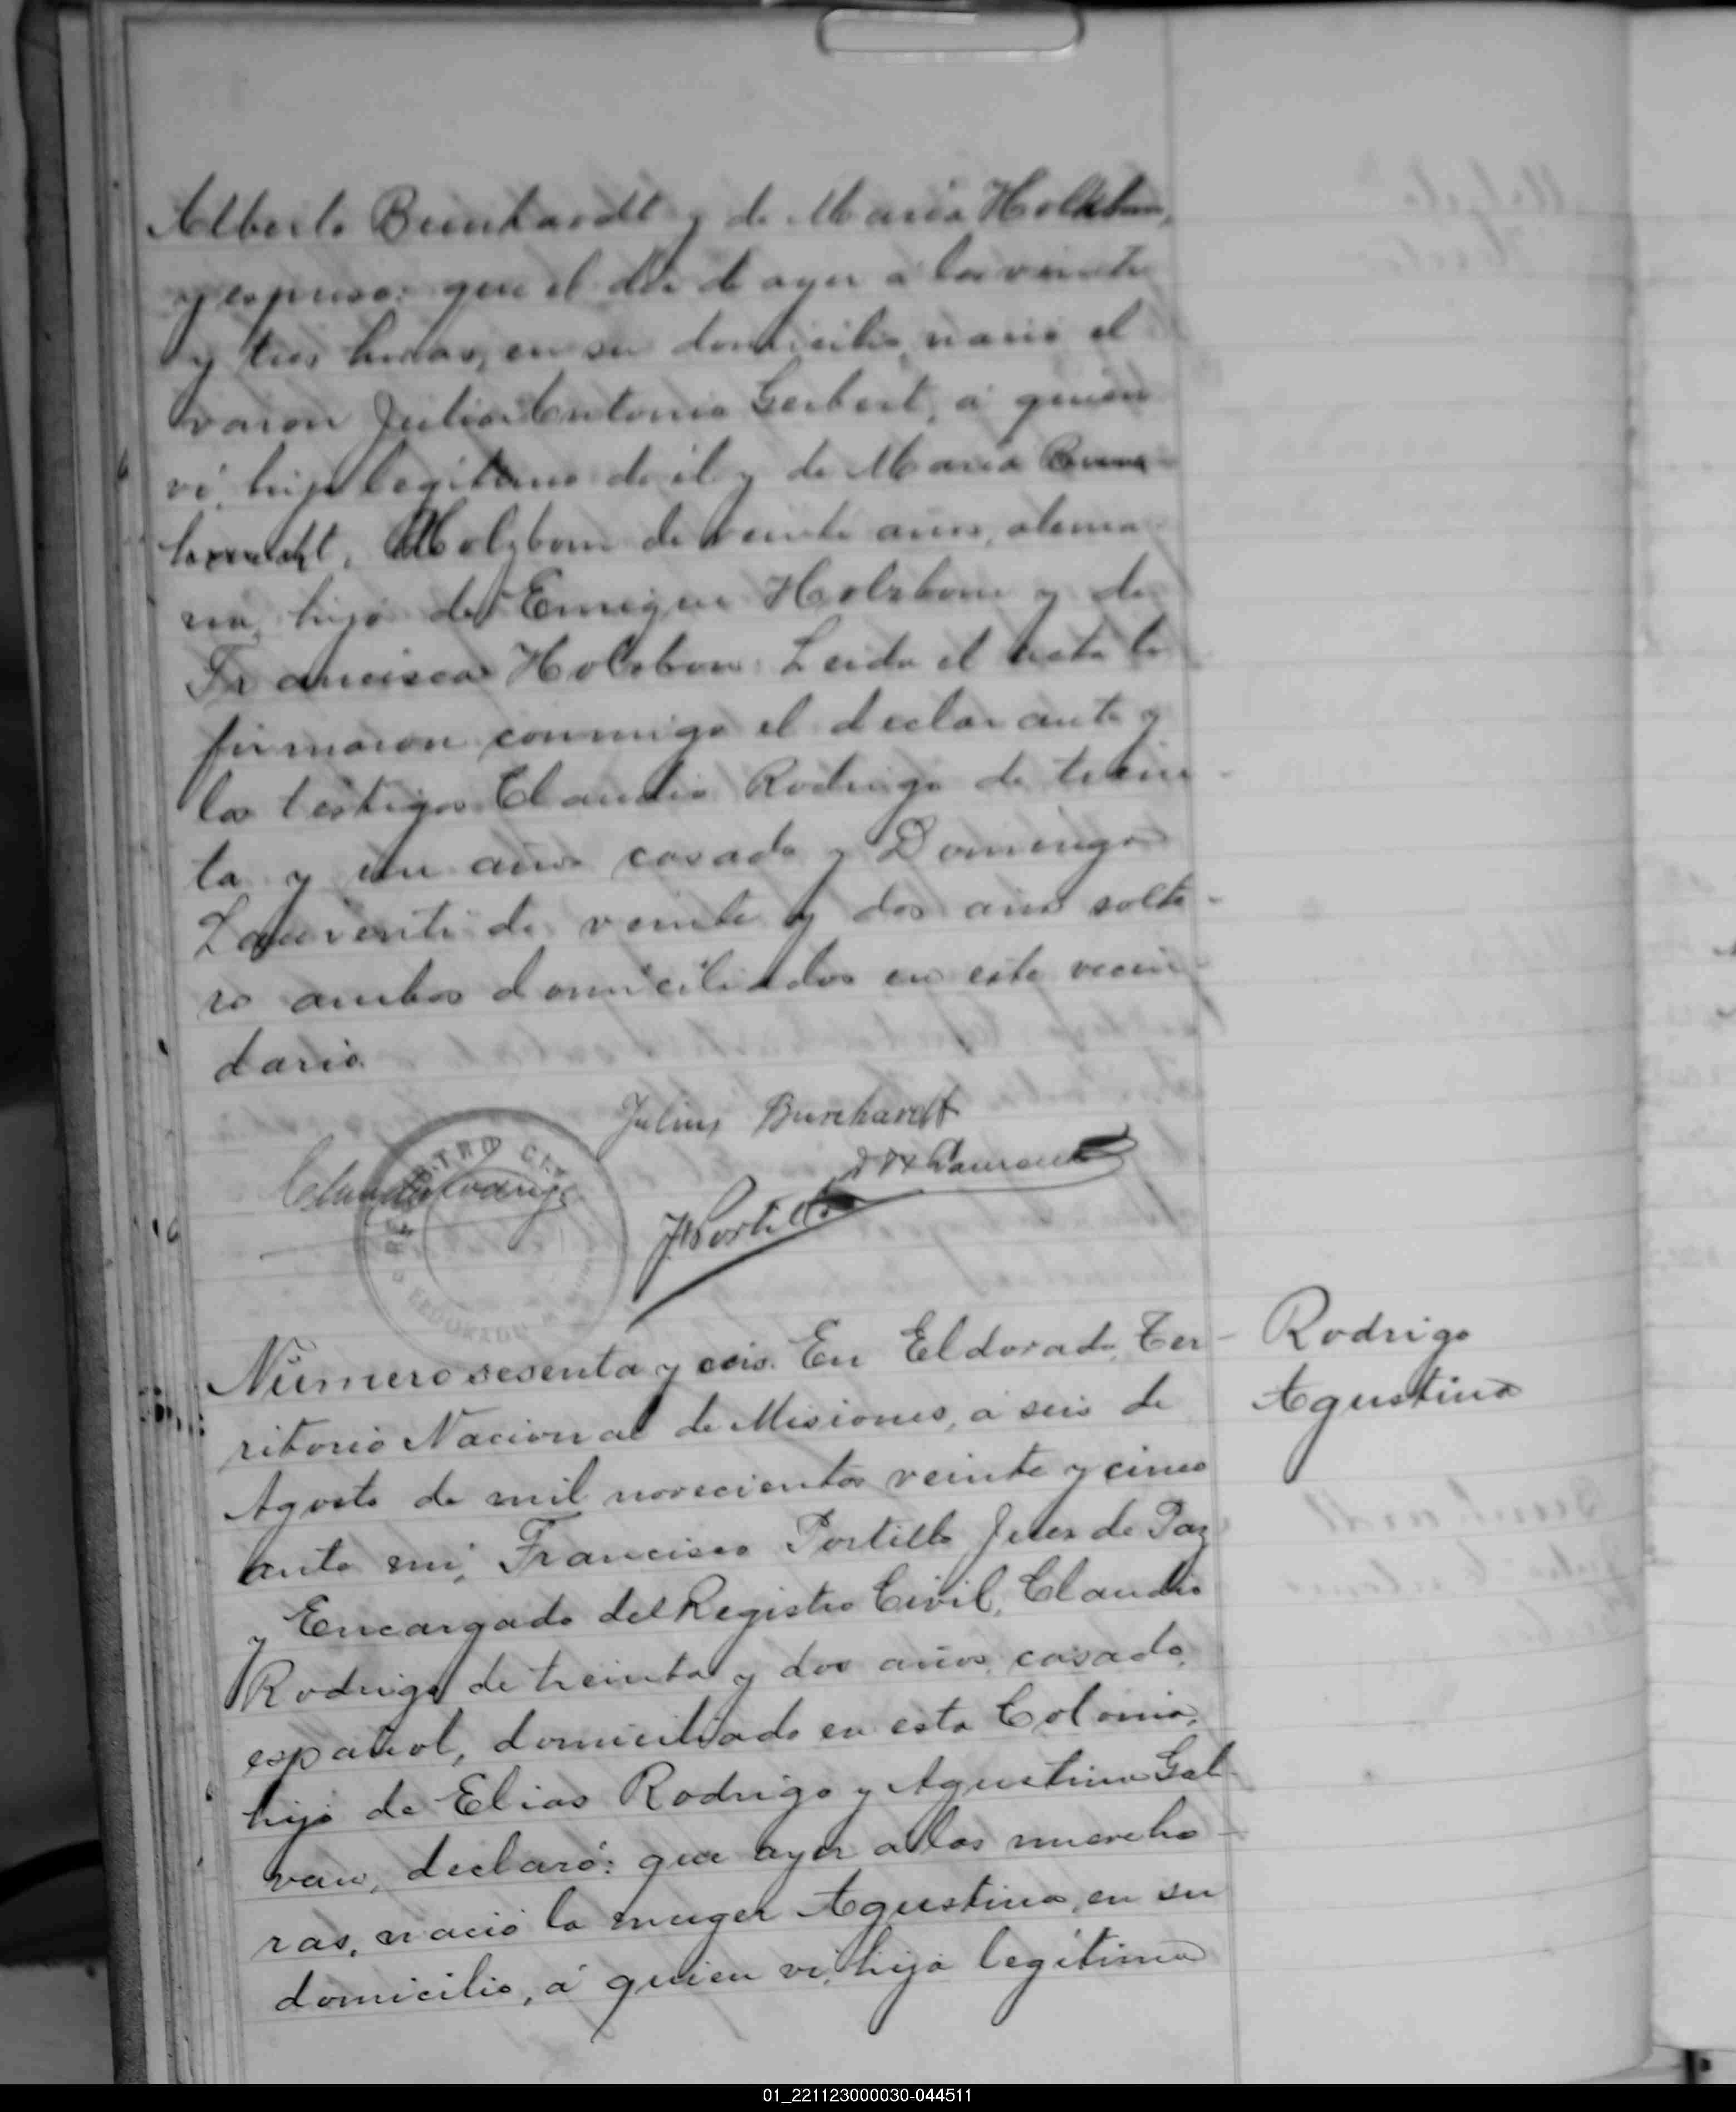 Alberto Burchardt y de Maria Holzbon,
y espuso: que el dia de ayer á las veinte
y tres horas, en su domicilio, nacio el
varon Julio Antonio Gerbert, á quien
vi, hijo legitimo de él y de Maria
Holzbon de veinte años, alema-
na, hija de Enrique Holzbon y de
Francisca Holzbon. Leida el acta la
firmaron conmigo el declarante y
los testigos Claudio Rodrigo de trein-
ta y un años casado y Domingo
Laurenti de veinte y dos años solte-
ro ambos domiciliados en este vecin-
dario.
Julius Burchardt
Claudio Rodrigo
Laurenti
FPortillo
REGISTRO CIVIL
ELDORADO
Número sesenta y seis. En Eldorado, Ter-
ritorio Nacional de Misiones, á seis de
Agosto de mil novecientos veinte y cinco
ante mi, Francisco Portillo Juez de Paz
y Encargado del Registro Civil, Claudio
Rodrigo de treinta y dos años, casado,
español, domiciliado en esta Colonia,
hijo de Elias Rodrigo y Agustina Gal-
van, declaró: que ayer a las nueve ho-
ras, nació la muger Agustina, en su
domicilio, á quien vi, hija legítima
Rodrigo
Agustina
01_221123000030-044511